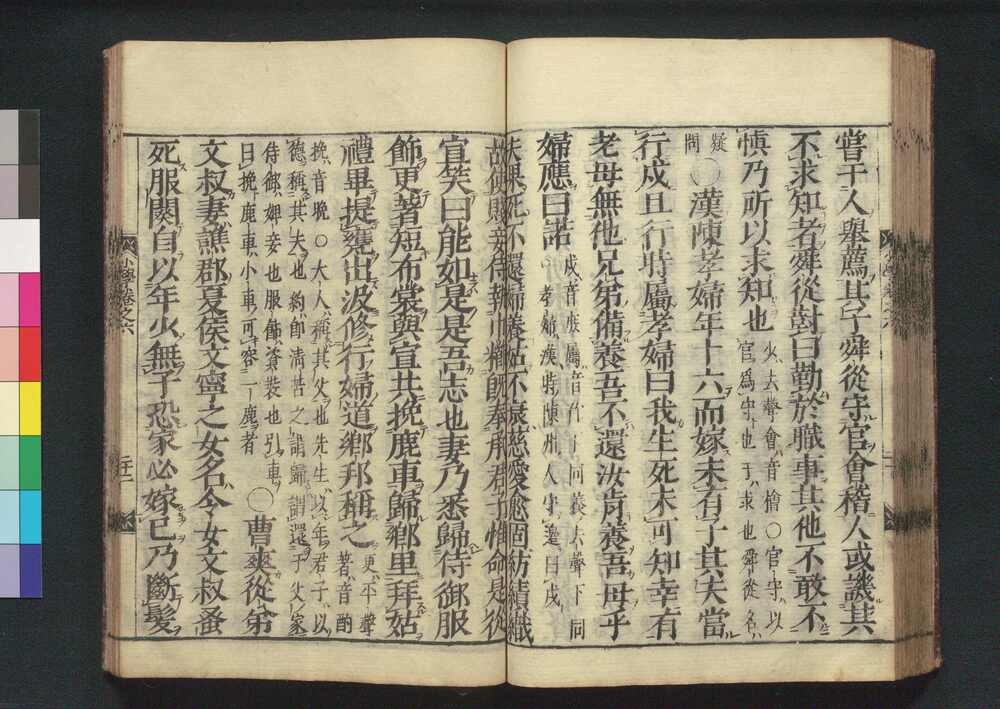 嘗干人舉薦其子舜從守官會稽人或譏其
不求知者舜從對曰勤於職事其他不敢不
愼乃所以求知也少去聲會音檜○官守以官爲守也于求也舜從名
疑問○漢陳孝婦年十六而嫁未有子其夫當
行戍且行時屬孝婦曰我生死未可知幸有
老母無他兄弟備養吾不還汝肯養吾母乎
婦應曰諾戍音庶屬音竹下同養去聲下同孝婦漢時陳州人守邊曰戍
夫果死不還婦養姑不衰慈愛愈固紡績織
故使賤妾侍執巾櫛旣奉承君子惟命是從
宣笑曰能如是是吾志也妻乃悉歸侍御服
飾更著短布裳與宣共挽鹿車歸鄕里拜姑
禮畢提甕出汲修行婦道鄕邦稱之更平聲著音酌
挽音晚○大人稱其父也先生以年君子以德稱其夫也約卽淸苦之謂歸謂還于父家
侍御婢妾也服飾資裝也引車曰挽鹿車小車可容一鹿者○曹爽從弟
文叔妻譙郡夏侯文寧之女名令女文叔蚤
死服闋自以年少無子恐家必嫁己乃斷髮
小學卷之六
二十二